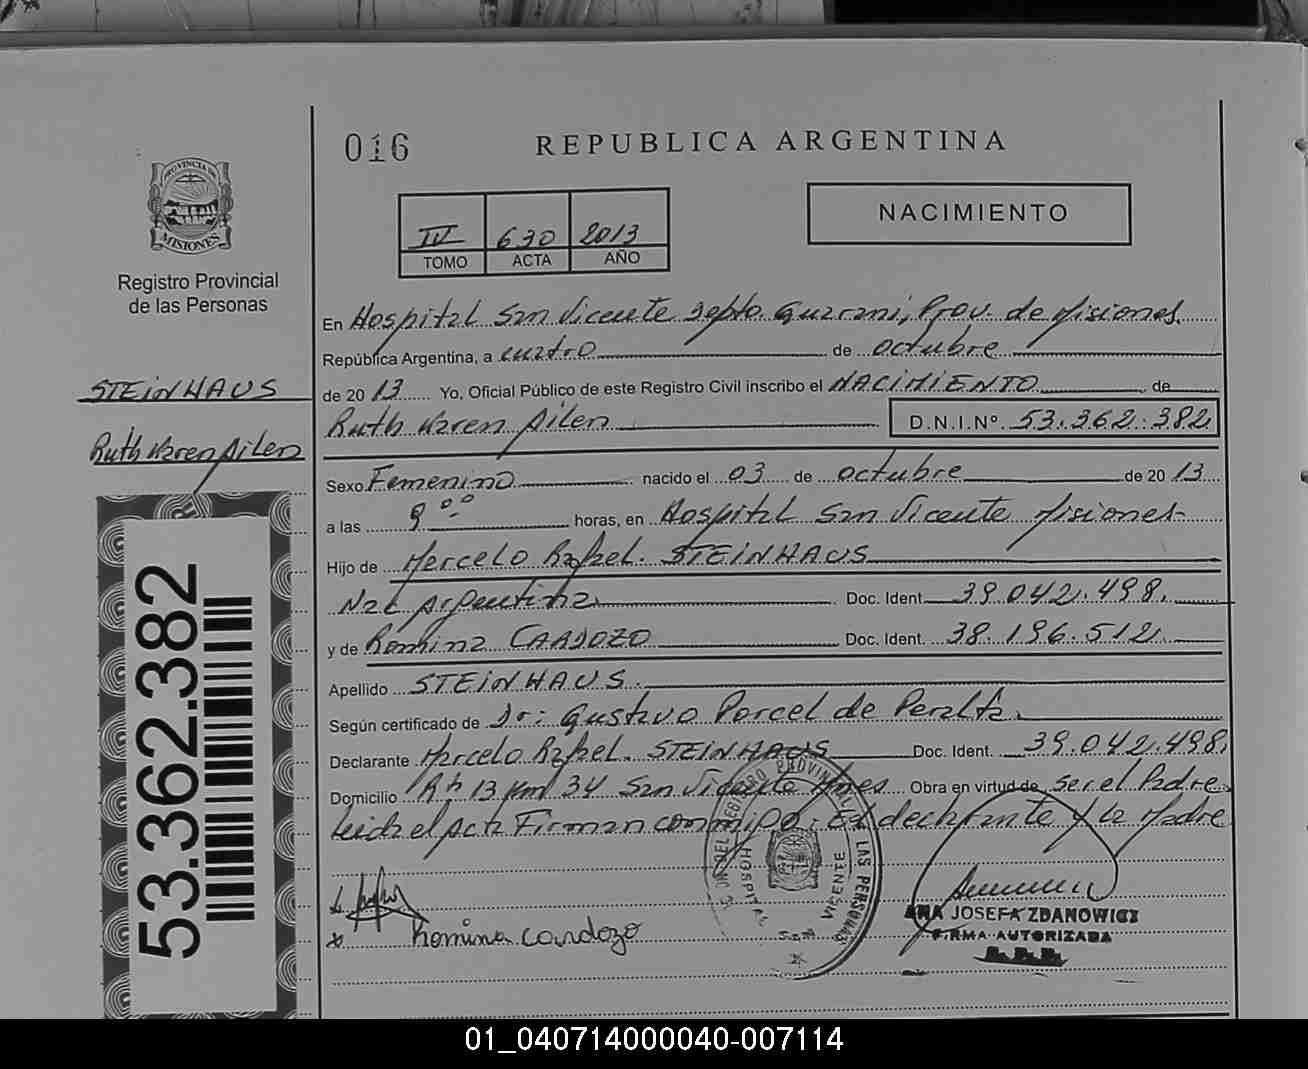 016
REPUBLICA ARGENTINA
PROVINCIA DE
MISIONES
Registro Provincial
de las Personas
IV 630 2013
TOMO ACTA AÑO
NACIMIENTO
En Hospital San Vicente Depto. Guarani, Prov. de Misiones.
República Argentina, a cuatro de octubre
de 2013 Yo, Oficial Público de este Registro Civil inscribo el NACIMIENTO de
Ruth Karen Ailen D.N.I.Nº. 53.362.382
STEINHAUS
Ruth Karen Ailen
53.362.382
Sexo Femenino nacido el 03 de octubre de 2013
a las 9 °° horas, en Hospital San Vicente Misiones-
Hijo de Marcelo Rafael. STEINHAUS
Nac Argentina. Doc. Ident. 39.042.498.
y de Romina CARDOZO Doc. Ident. 38.196.512.
Apellido STEINHAUS.
Según certificado de Dr: Gustavo Porcel de Peralta.
Declarante Marcelo Rafael. STEINHAUS Doc. Ident. 39.042.498.
Domicilio Rta 13 Km 34 San Vicente Mnes Obra en virtud de ser el Padre
Leida el Acta Firman conmigo. El declarante y la Madre
PROVINCIAL
LAS PERSONAS
HOSPITAL
VICENTE
x
x Romina Cardozo
ANA JOSEFA ZDANOWICZ
FIRMA AUTORIZADA
01_040714000040-007114